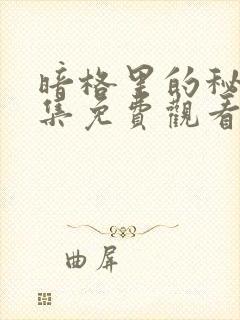 暗格里的秘
集免費觀看
曲屏